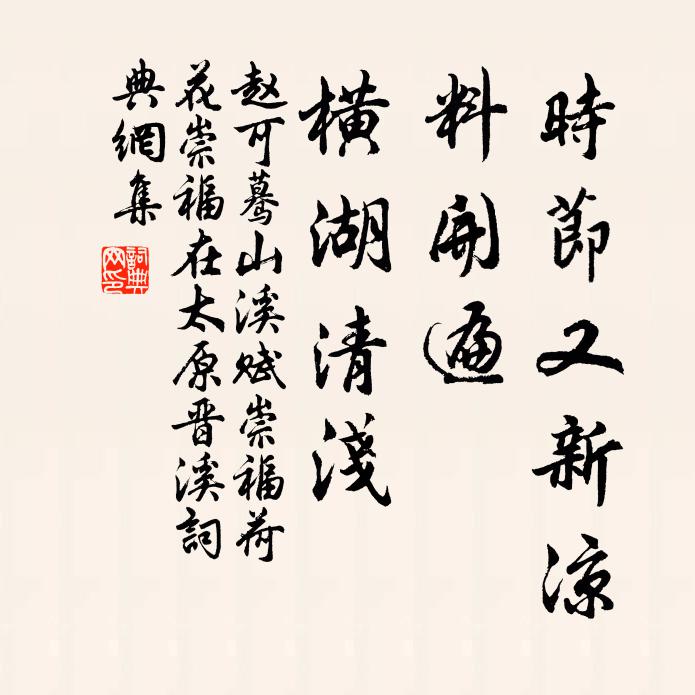 時節又新涼
料開遍
橫湖清淺
赵可驀山溪赋崇福荷
花崇福在太原晋溪詞
典網集
詞典
网印